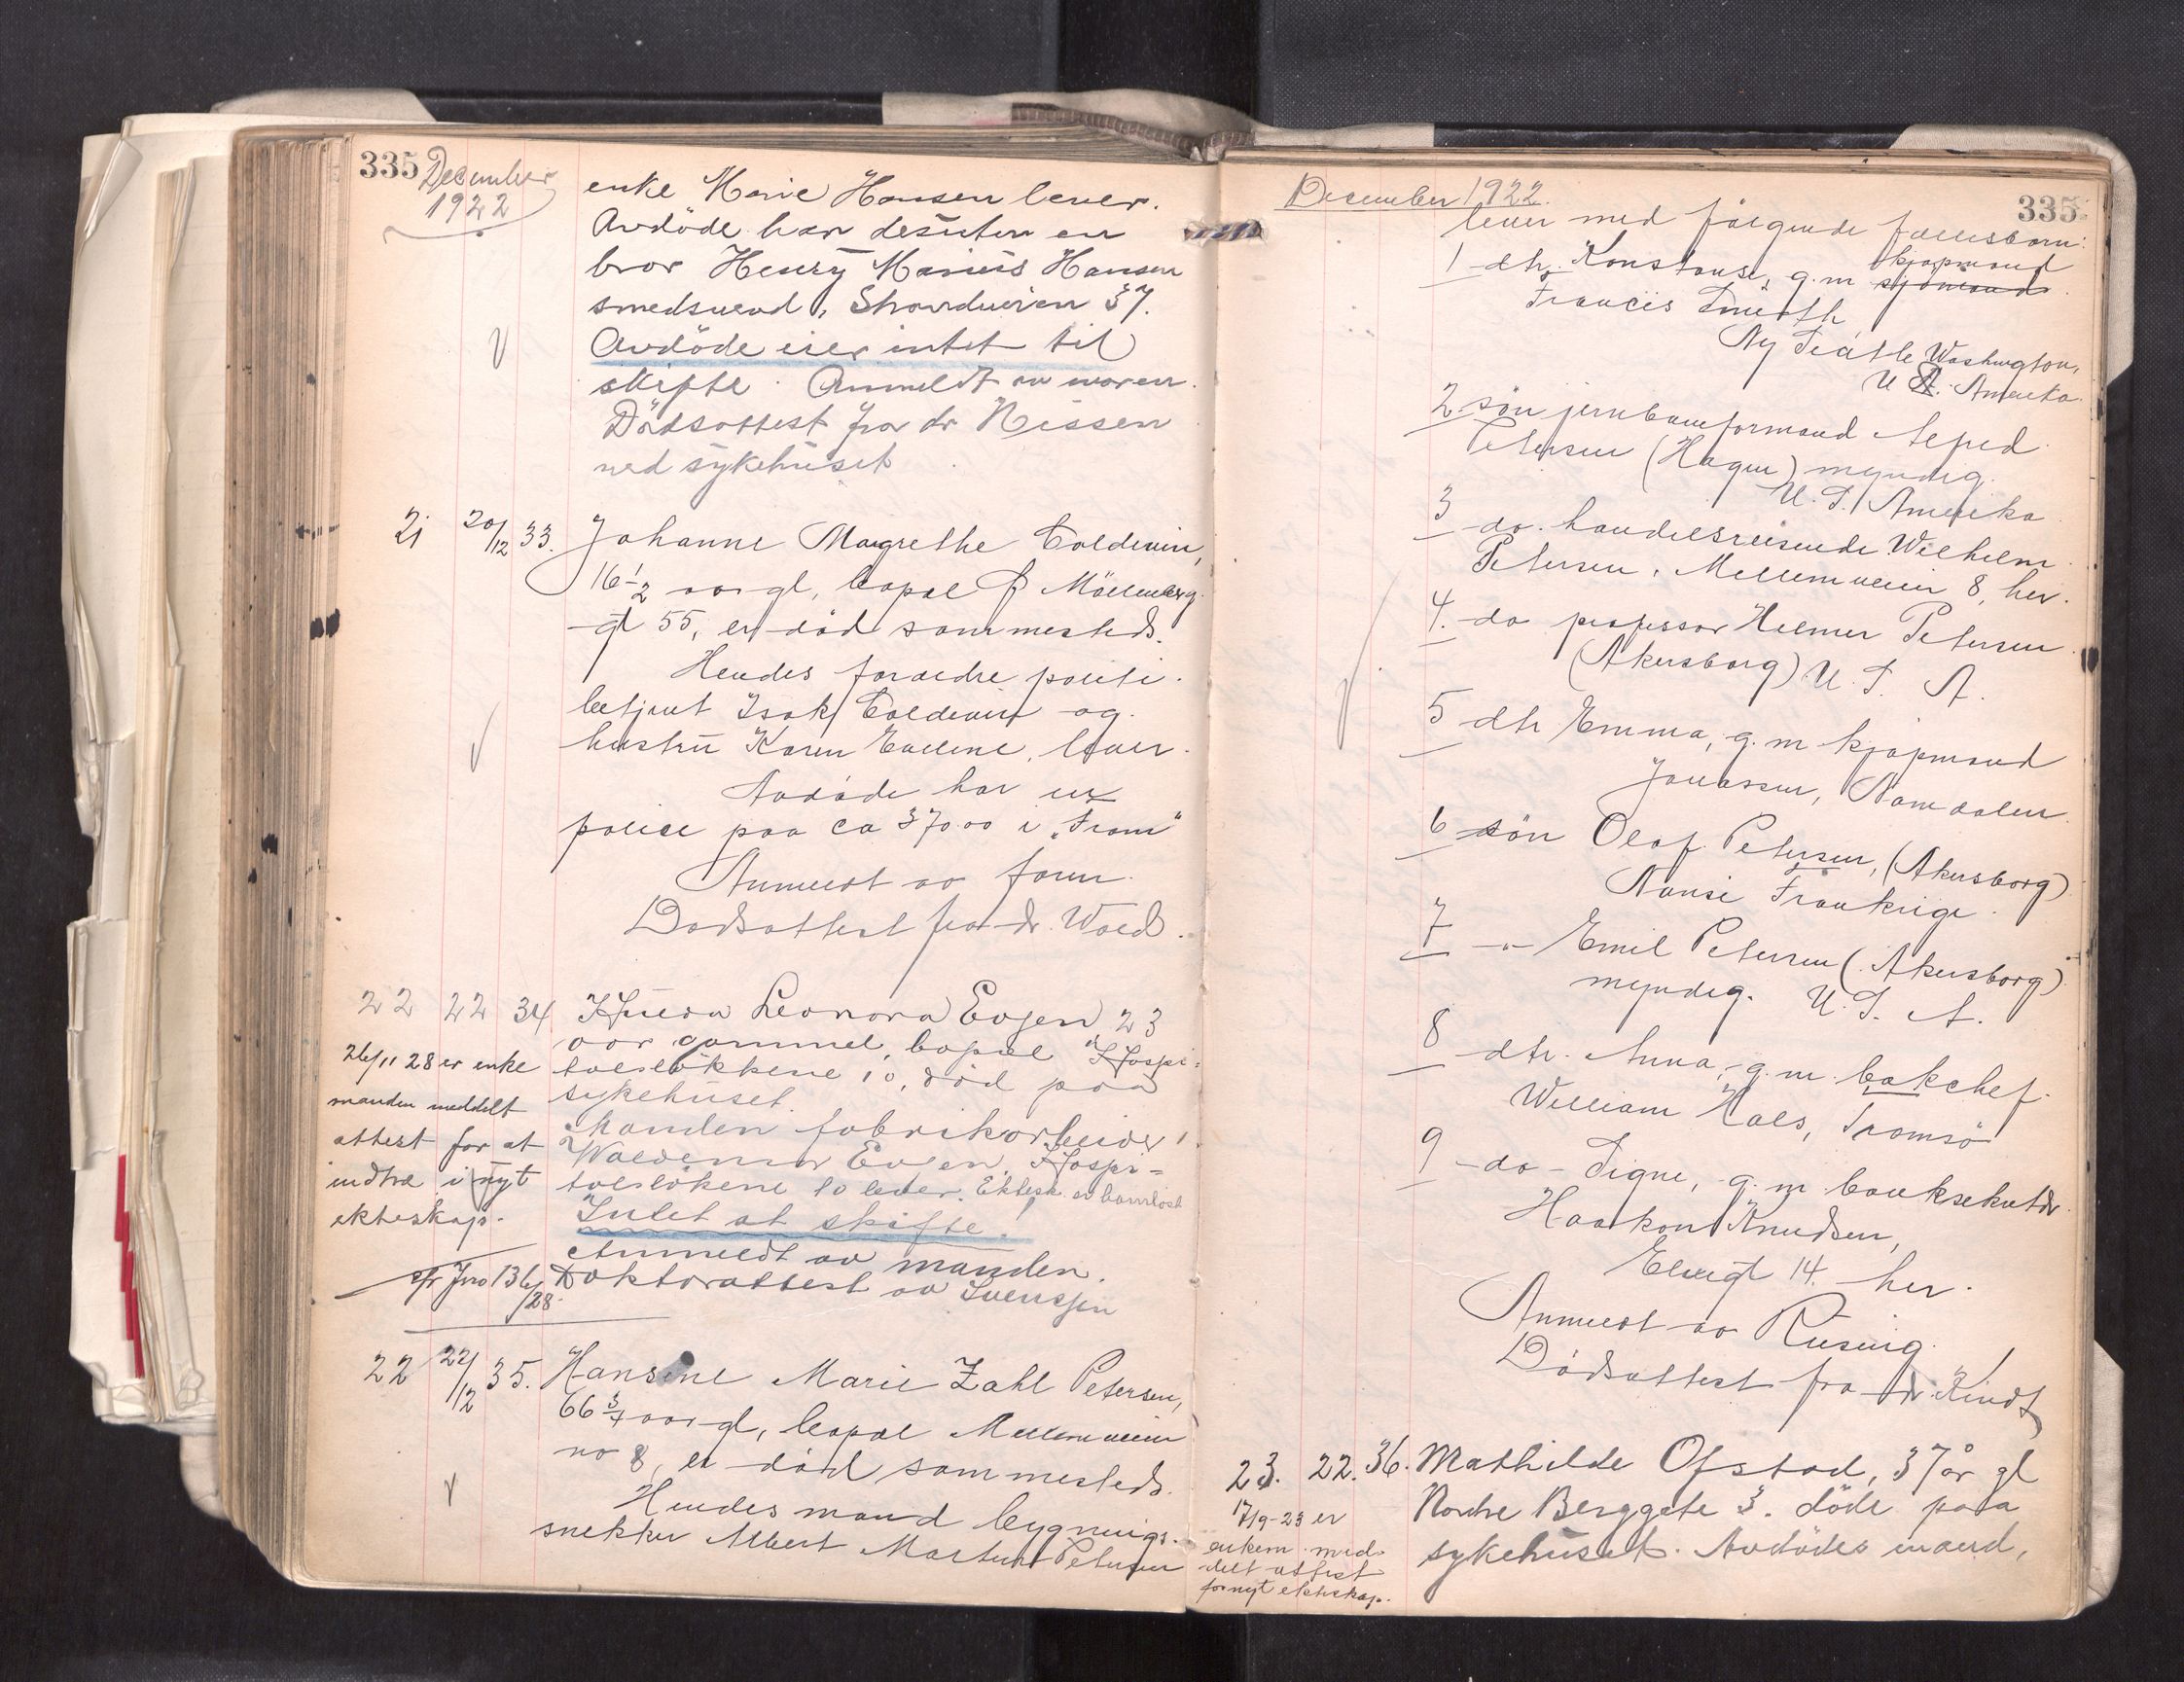 335 December
1922
enke Marie Hansen lever.
Avdöde har desuten en
bror Henry Marius Hansen
smedsvend, Strandveien 37.
Avdöde eier intet til
skifte. Anmeldt av moren.
Dödsattest fra dr Nissen
ved sykehuset
21 20/12 33. Johanne Magrethe Coldevin,
16 1/2 aar gl, bopæl Ø Möllenberg
gt 55, er död sammesteds.
Hendes forældre politi-
betjent Isak Coldevin og
hustru Karen Eveline, lever.
Avdöde har en
police paa ca 370.00 i "Fram"
Anmeldt av faren.
Dödsattest fra dr. Wold.
22 22 34 Leonora Evjen 23
aar gammel, bopæl "Hospi-
talslökkene 10, död paa
sykehuset.
Manden fabrikarbeider
Waldemar Evjen, Hospi-
talslökkene 10 lever. Ektesk. er barnlöst
Intet at skifte!
Anmeldt av manden.
Doktorattest av
26/11 28 er enke
manden meddelt
attest for at
indtræ i nyt
ekteskap.
cfr Jno 136/28
22 22/12 35. Hansine Marie Zahl Petersen,
66 3/4 aar gl, bopæl Mellemveien
no 8, er död sammesteds.
Hendes mand bygnings-
snekker Albert Martin Petersen
December 1922. 335
lever med fölgende fællesbarn:
1 dtr. Konstanse, g. m. sjömand kjöpmand
Francis Smith
Ny Seatle Washington,
U S. Amerika.
2 sön jernbaneformand
Petersen (Hagen) myndig.
U. S. Amerika
3 do. handelsreisende Wilhelm
Petersen, Mellemveien 8, her.
4. do professor Hilmer Petersen
(Akersborg) U. S. A.
5 dtr Emma, g. m kjöpmand
Jonassen, Namdalen
6 sön Olaf Petersen, (Akersborg)
Nansi Frankrige.
7 -"- Emil Petersen (Akersborg)
myndig. U. S. A.
8 dtr. Anna, g. m. bakchef
William Hals, Tromsö
9 do Signe, g. m. banksekretær
Haakon Knudsen,
Elvegt 14. her.
Anmeldt av Rusing.
Dödsattest fra dr. Kindt
23. 22. 36. Mathilde Ofstad, 37 år gl
Nordre Berggate 3. döde paa
sykehuset. Avdödes mand,
17/9-23 er
enkem. med-
delt attest
for nyt ekteskap.